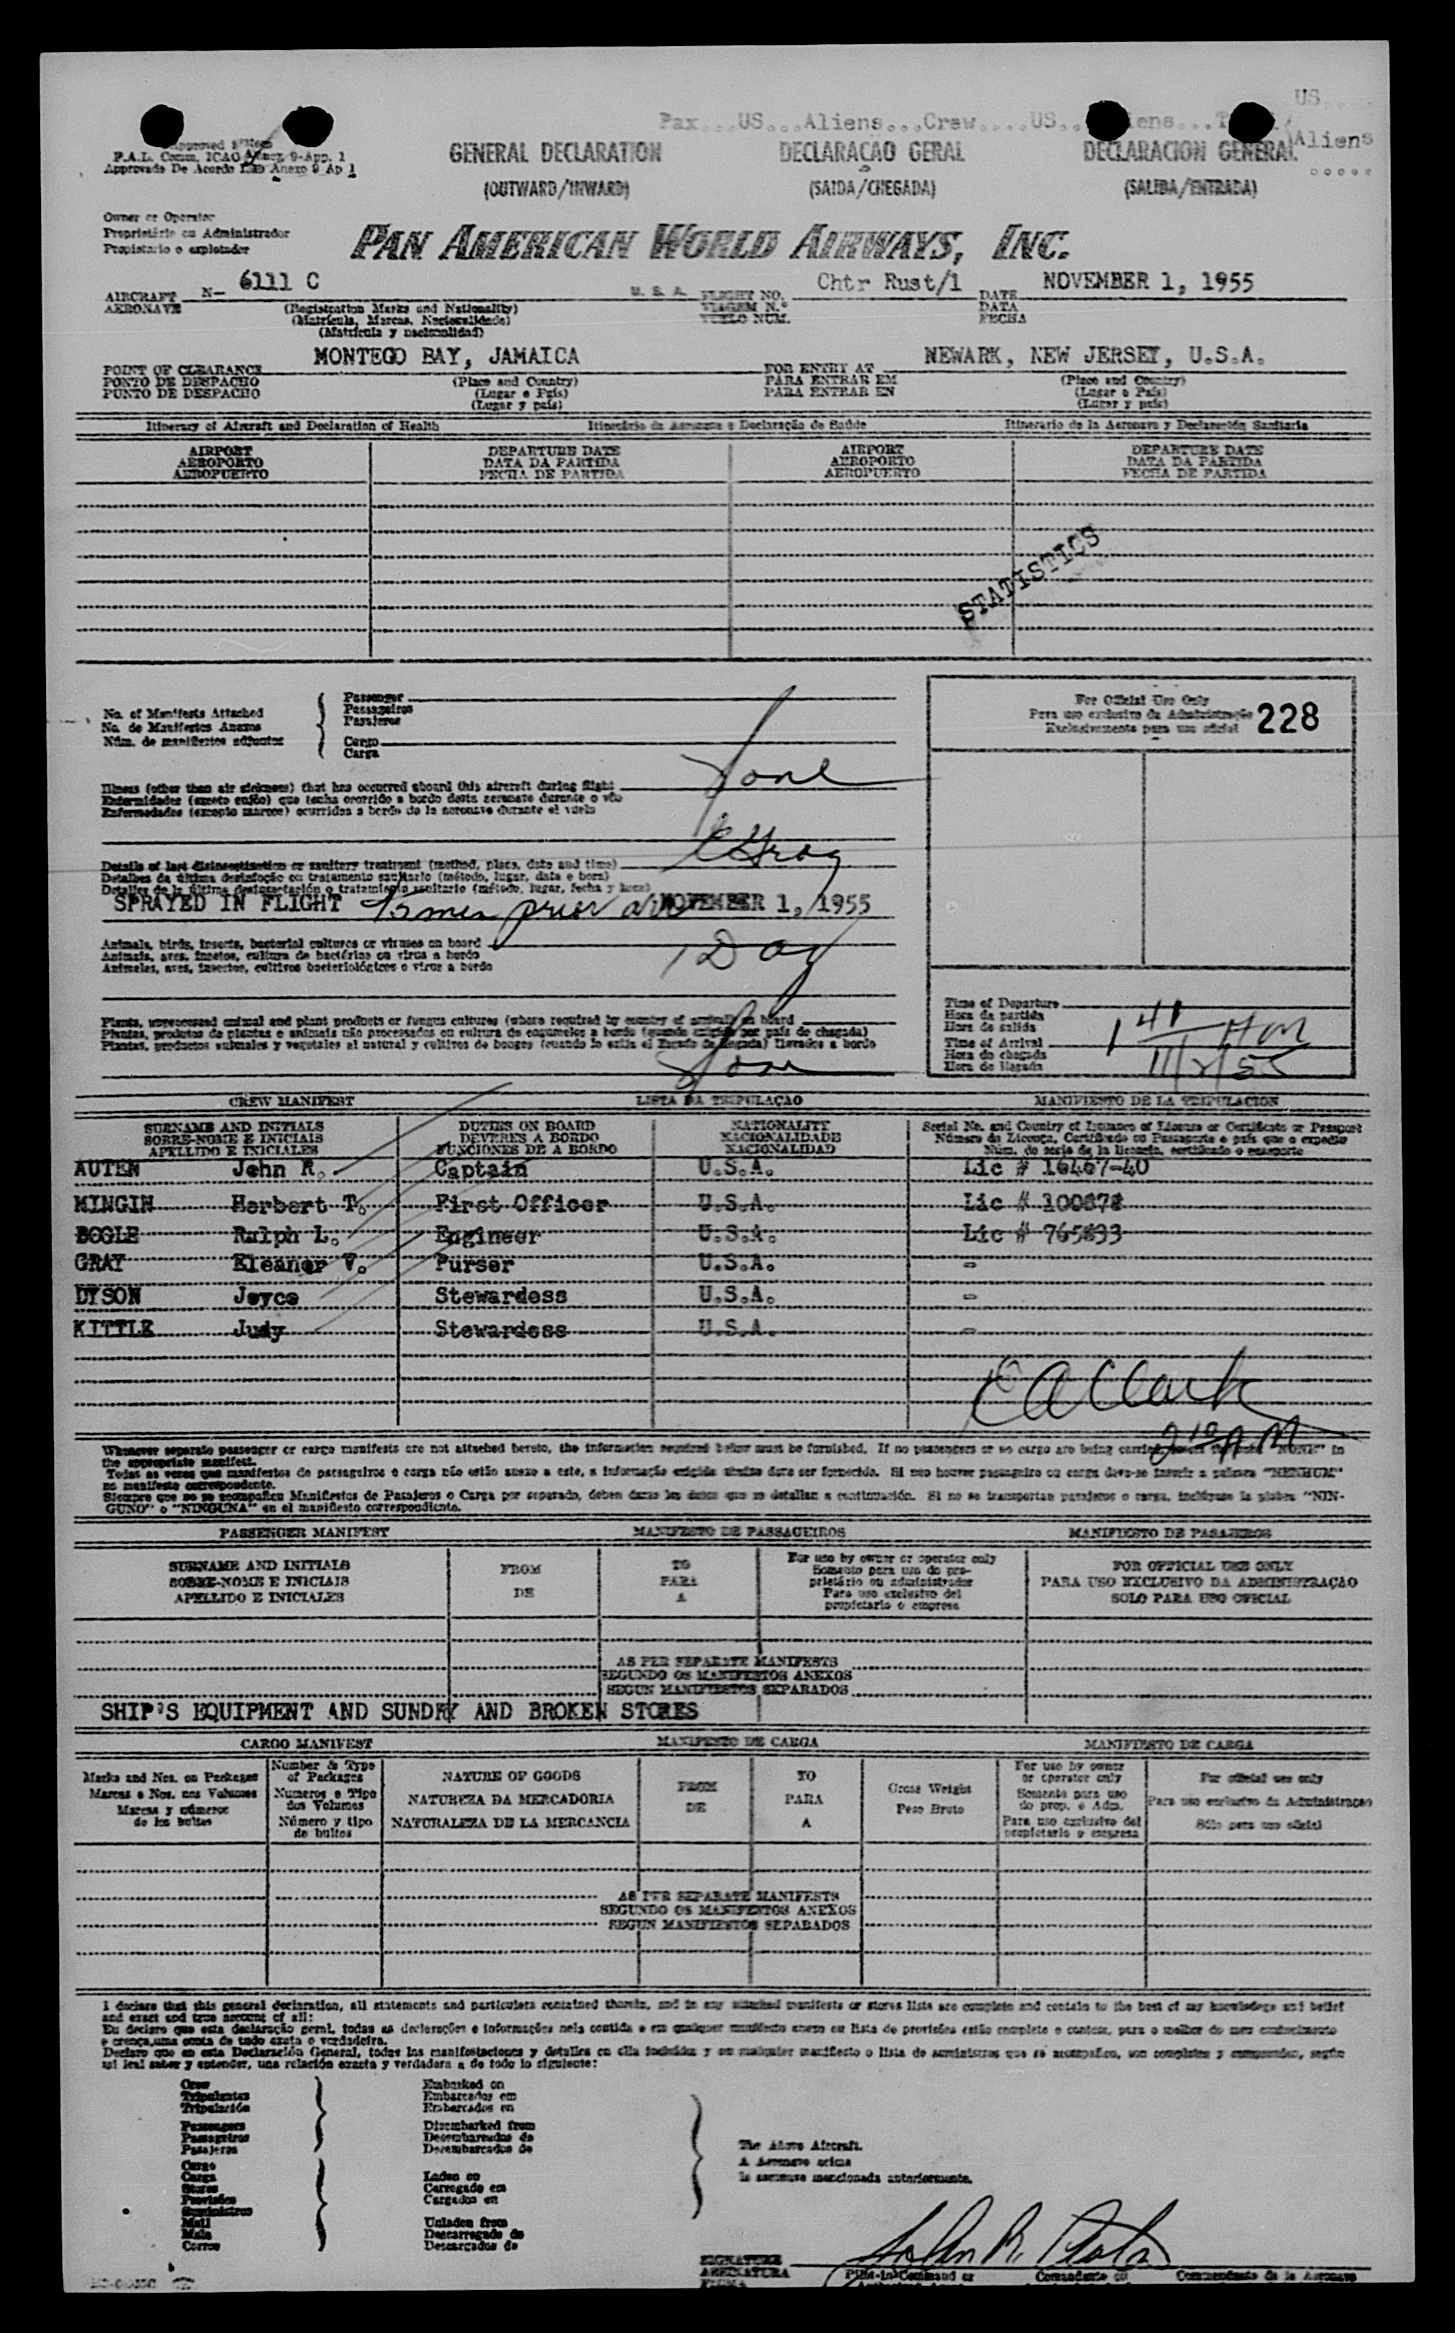 Pax...US...Aliens...Crew....US...
US....
Aliens
.....
Approved
F.A.L. Comm. ICAO Annex 9-App. 1
Approvado De Acordo Anexo 9 Ap 1
GENERAL DECLARATION DECLARAÇÃO GERAL DECLARACION GENERAL
(OUTWARD/INWARD) (SAIDA/CHEGADA) (SALIDA/ENTRADA)
Owner or Operator
Proprietário ou Administrador
Propietario o explotador
PAN AMERICAN WORLD AIRWAYS, INC.
AIRCRAFT N- 6111 C U. S. A. FLIGHT NO. Chtr Rust/1 DATE NOVEMBER 1, 1955
AERONAVE (Registration Marks and Nationality) VIAGEM N.º DATA
(Matrícula, Marcas, Nacionalidade) VUELO NUM. FECHA
(Matrícula y nacionalidad)
POINT OF CLEARANCE MONTEGO BAY, JAMAICA FOR ENTRY AT NEWARK, NEW JERSEY, U.S.A.
PONTO DE DESPACHO (Place and Country) PARA ENTRAR EM (Place and Country)
PUNTO DE DESPACHO (Lugar e País) PARA ENTRAR EN (Lugar e País)
(Lugar y país) (Lugar y país)
Itinerary of Aircraft and Declaration of Health Itinerário da Aeronave e Declaração de Saúde Itinerario de la Aeronave y Declaración Sanitaria
AIRPORT DEPARTURE DATE AIRPORT DEPARTURE DATE
AEROPORTO DATA DA PARTIDA AEROPORTO DATA DA PARTIDA
AEROPUERTO FECHA DE PARTIDA AEROPUERTO FECHA DE PARTIDA
STATISTICS
No. of Manifests Attached
No. de Manifestos Anexos
Núm. de manifiestos adjuntos
Passenger
Passageiros
Pasajeros
Cargo
Carga
For Official Use Only
Para uso exclusivo da Administração
Exclusivamente para uso oficial
228
Illness (other than air sickness) that has occurred aboard this aircraft during flight None
Enfermidades (exceto enjôo) que tenha ocorrido a bordo desta aeronave durante o vôo
Enfermedades (excepto mareos) ocurridas a bordo de la aeronave durante el vuelo
EGray
Details of last disinsectization or sanitary treatment (method, place, date and time)
Detalhes da última desinfeção ou tratamento sanitário (método, lugar, data e hora)
Detalles de la última desinsectación o tratamiento sanitario (método, lugar, fecha y hora)
SPRAYED IN FLIGHT 15 min prior arr NOVEMBER 1, 1955
Animals, birds, insects, bacterial cultures or viruses on board 1 Dog
Animais, aves, insetos, cultura de bactérias ou virus a bordo
Animales, aves, insectos, cultivos bacteriológicos o virus a bordo
Plants, unprocessed animal and plant products or fungus cultures (where required by country of arrival) on board
Plantas, produtos de plantas e animais não processados ou cultura de cogumelos a bordo (quando exigido por país de chegada)
Plantas, productos animales y vegetales al natural y cultivos de hongos (cuando lo exija el Estado de llegada) llevados a bordo
None
Time of Departure
Hora da partida
Hora de salida
Time of Arrival 1 41 AM
Hora da chegada 11/2/55
Hora de llegada
CREW MANIFEST LISTA DA TRIPULAÇAO MANIFIESTO DE LA TRIPULACION
SURNAME AND INITIALS DUTIES ON BOARD NATIONALITY Serial No. and Country of Issuance of License or Certificate or Passport
SOBRE-NOME E INICIAIS DEVERES A BORDO NACIONALIDADE Número da Licença, Certificado ou Passaporte e país que o expediu
APELLIDO E INICIALES FUNCIONES DE A BORDO NACIONALIDAD Núm. de serie de la licencia, certificado o pasaporte
AUTEN John R. Captain U.S.A. Lic # 16467-40
MINGIN Herbert T. First Officer U.S.A. Lic # 100678
BOGLE Ralph L. Engineer U.S.A. Lic # 765893
GRAY Eleanor V. Purser U.S.A. -
DYSON Joyce Stewardess U.S.A. -
KITTLE Judy Stewardess U.S.A. -
E A Clark
2 10 A M
Whenever separate passenger or cargo manifests are not attached hereto, the information required below must be furnished. If no passengers or no cargo are being carried "NONE" in
the appropriate manifest.
Todas as vezes que manifestos de passageiros e carga não estão anexo a este, a informação exigida abaixo deve ser fornecida. Si não houver passageiro ou carga deve-se inserir a palavra "NENHUM"
no manifesto correspondente.
Siempre que no se acompañen Manifiestos de Pasajeros o Carga por separado, deben darse los datos que se detallan a continuación. Si no se transportan pasajeros o carga, inclúyase la palabra "NIN-
GUNO" o "NINGUNA" en el manifiesto correspondiente.
PASSENGER MANIFEST MANIFESTO DE PASSAGEIROS MANIFIESTO DE PASAJEROS
SURNAME AND INITIALS FROM TO For use by owner or operator only FOR OFFICIAL USE ONLY
SOBRE-NOME E INICIAIS PARA Somente para uso do pro- PARA USO EXCLUSIVO DA ADMINISTRAÇÃO
APELLIDO E INICIALES DE A prietário ou administrador SOLO PARA USO OFICIAL
Para uso exclusivo del
propietario o empresa
AS PER SEPARATE MANIFESTS
SEGUNDO OS MANIFESTOS ANEXOS
SEGUN MANIFIESTOS SEPARADOS
SHIP'S EQUIPMENT AND SUNDRY AND BROKEN STORES
CARGO MANIFEST MANIFESTO DE CARGA MANIFIESTO DE CARGA
Marks and Nos. on Packages Number & Type of Packages NATURE OF GOODS FROM TO Gross Weight For use by owner or operator only For official use only
Marcas e Nos. nos Volumes Numeros e Tipo dos Volumes NATUREZA DA MERCADORIA DE PARA Peso Bruto Somente para uso do prop. e Adm. Para uso exclusivo da Administraçao
Marcas y números de los bultos Número y tipo de bultos NATURALEZA DE LA MERCANCIA A Para uso exclusivo del propietario o empresa Sólo para uso oficial
AS PER SEPARATE MANIFESTS
SEGUNDO OS MANIFESTOS ANEXOS
SEGUN MANIFIESTOS SEPARADOS
I declare that this general declaration, all statements and particulars contained therein, and in any attached manifests or stores lists are complete and contain to the best of my knowledge and belief
and exact and true account of all:
Eu declaro que esta declaração geral, todas as declarações e informações nela contida e em qualquer manifesto anexo ou lista de provisões estão completo e contem, para o melhor do meu conhecimento
e crença, uma conta de tudo exata e verdadeira.
Declaro que en esta Declaración General, todas las manifestaciones y detalles en ella incluidos y en cualquier manifiesto o lista de suministros que se acompañen, son completos y comprenden, según
mi leal saber y entender, una relación exacta y verdadera a de todo lo siguiente:
Crew Embarked on
Tripulantes Embarcados em
Tripulación Embarcados en
Passengers Disembarked from
Passageiros Desembarcados de
Pasajeros Desembarcados de
Cargo
Carga Laden on
Stores Carregado em
Provisões Cargados en
Suministros
Mail Unladen from
Mala Descarregado de
Correo Descargados de
The Above Aircraft.
A Aeronave acima
la aeronave mencionada anteriormente.
SIGNATURE John R.
ASSINATURA Pilot-in-Command or Comandante ou Commandante de la Aeronave
FIRMA